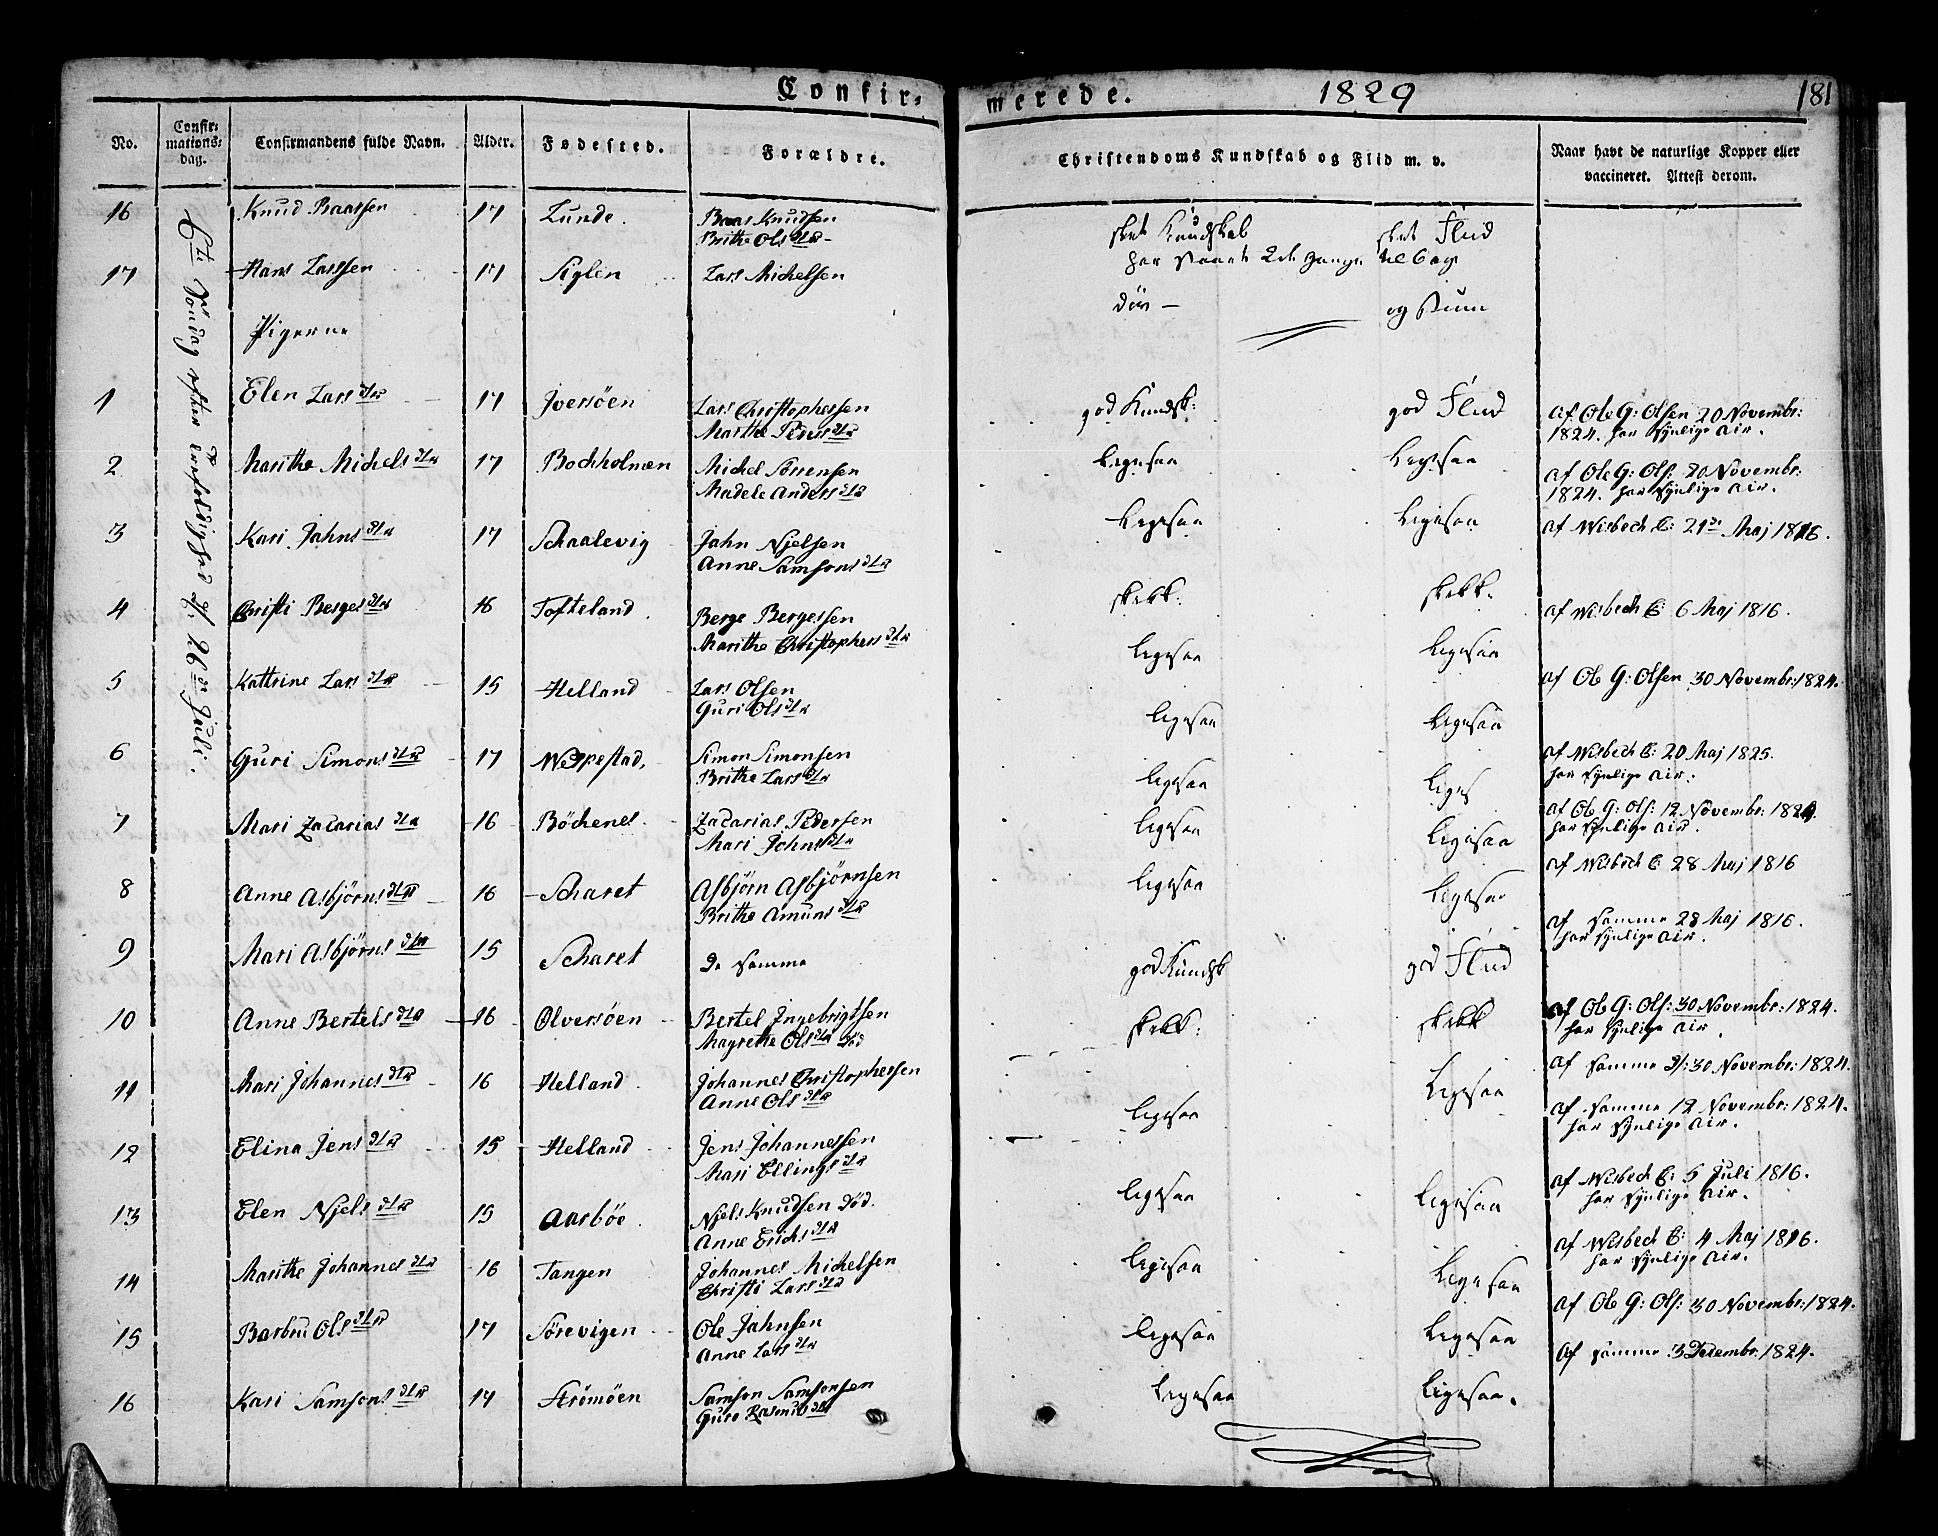 Confir- merede. 1829 181
No. Confir-mations-dag. Confirmandens fulde Navn. Alder. Fødested. Forældre. Christendoms Kundskab og Flid m. v. Naar havt de naturlige Kopper eller vaccineret. Attest derom.
6te Søndag efter Trefoldighed d: 26de Juli.
16 Knud Baarsen 17 Lunde. Baar Knudsen
Brithe Olsdtr
sket Kundskab sket Flid
har staaet 2de gange tilbage
17 Hans Larssen 17 Siglen Lars Michelsen
døv og stum
Pigerne
1 Elen Larsdtr 17 Iversöen Lars Christophersen
Marthe Pedersdtr
god Kundsk: god Flid af Ole G: Olsen 20 Novembr:
1824. har synlige Air.
2 Marithe Michelsdtr 17 Bochholmen Michel Sörrensen
Madele Andersdtr
Ligesaa Ligesaa af Ole G: Ols: 20 Novembr:
1824. har synlige Air.
3 Kari Jahnsdtr 17 Schaalevig Jahn Njelsen
Anne Samsonsdtr
Ligesaa Ligesaa af Wisbech C: 21de Maj 1816.
4 Christi Bergesdtr 16 Tofteland. Berge Bergessen
Marithe Christophersdtr
skikk: skikk. af Wisbech C: 6 Maj 1816.
5 Kattrine Larsdtr 15 Helland Lars Olsen
Guri Olsdtr
Ligesaa Ligesaa af Ole G: Olsen 30 Novembr: 1824.
6 Guri Simonsdtr 17 Weppestad, Simon Simonsen
Brithe Larsdtr
ligesaa Ligesaa af Wisbech C: 20 Maj 1825.
har synlige Air.
7 Mari Zacariasdtr 16 Böckenes Zacarias Pedersen
Mari Johnsdtr
ligesaa Liges af Ole G: Ols: 12 Novembr: 1824.
har synlige Air.
8 Anne Asbjörnsdtr 16 Scharet Asbjörn Asbjörnsen
Brithe Amunsdtr
ligesaa Ligesaa af Wisbech C: 28 Maj 1816
9 Mari Asbjörnsdtr 15 Scharet de samme
ligesaa Ligesaa af samme 28 Maj 1816.
har synlige Air.
10 Anne Bertelsdtr 16 Olversöen Bertel Ingebrigtsen
Magrethe Olsdtr död
god Kundsk god Flid af Ole G: Ols: 30 Novembr: 1824.
har synlige Air.
11 Mari Johannesdtr 16 Helland. Johannes Christophersen
Anne Olsdtr
skikk: skikk af samme d: 30 Novembr: 1824.
12 Elina Jensdtr 15 Helland Jens Johannessen
Mari Ellingsdtr
ligesaa Ligesaa af samme 12 Novembr: 1824.
har synlige Air.
13 Elen Njelsdtr 15 Aarböe. Njels Knudsen Död.
Anne Erichsdtr
ligesaa Ligesaa af Wisbech C: 5 Juli 1816.
har synlige Air.
14 Marithe Johannesdtr 16 Tangen Johannes Michelsen
Christi Larsdtr
Ligesaa Ligesaa af Wisbech C: 4 Maj 1816.
har synlige Air.
15 Barbru Olsdtr 17 Sörevigen Ole Jahnsen
Anne Larsdtr
Ligesaa Ligesaa af Ole G: Ols: 30 Novembr: 1824.
16 Kari Samsonsdtr 17 Strömöen Samson Samsonsen
Guro Rasmusdtr
Ligesaa Ligesaa. af samme 3 Decembr: 1824.